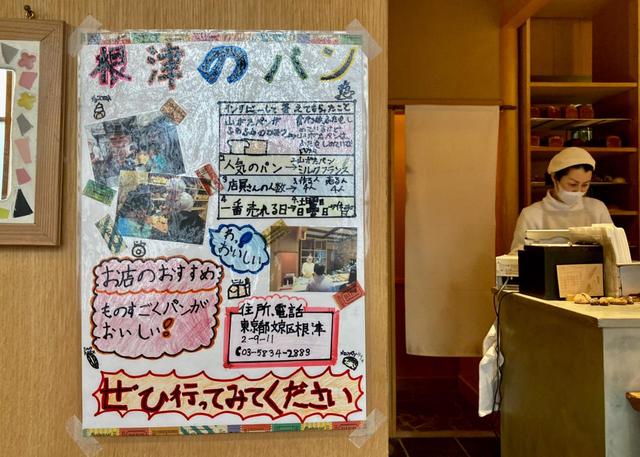 根津のパン
インタビューして答えてもらったこと
人気のパン→
山がたパン
ミルクフランス
店員さんの人数→
4人
4人
一番売れる日→
わぁ、
おいしい
お店のおすすめ
ものすごくパンが
おいしい!
住所、電話
東京都文京区根津
2-9-11
03-5834-2883
ぜひ行ってみてください